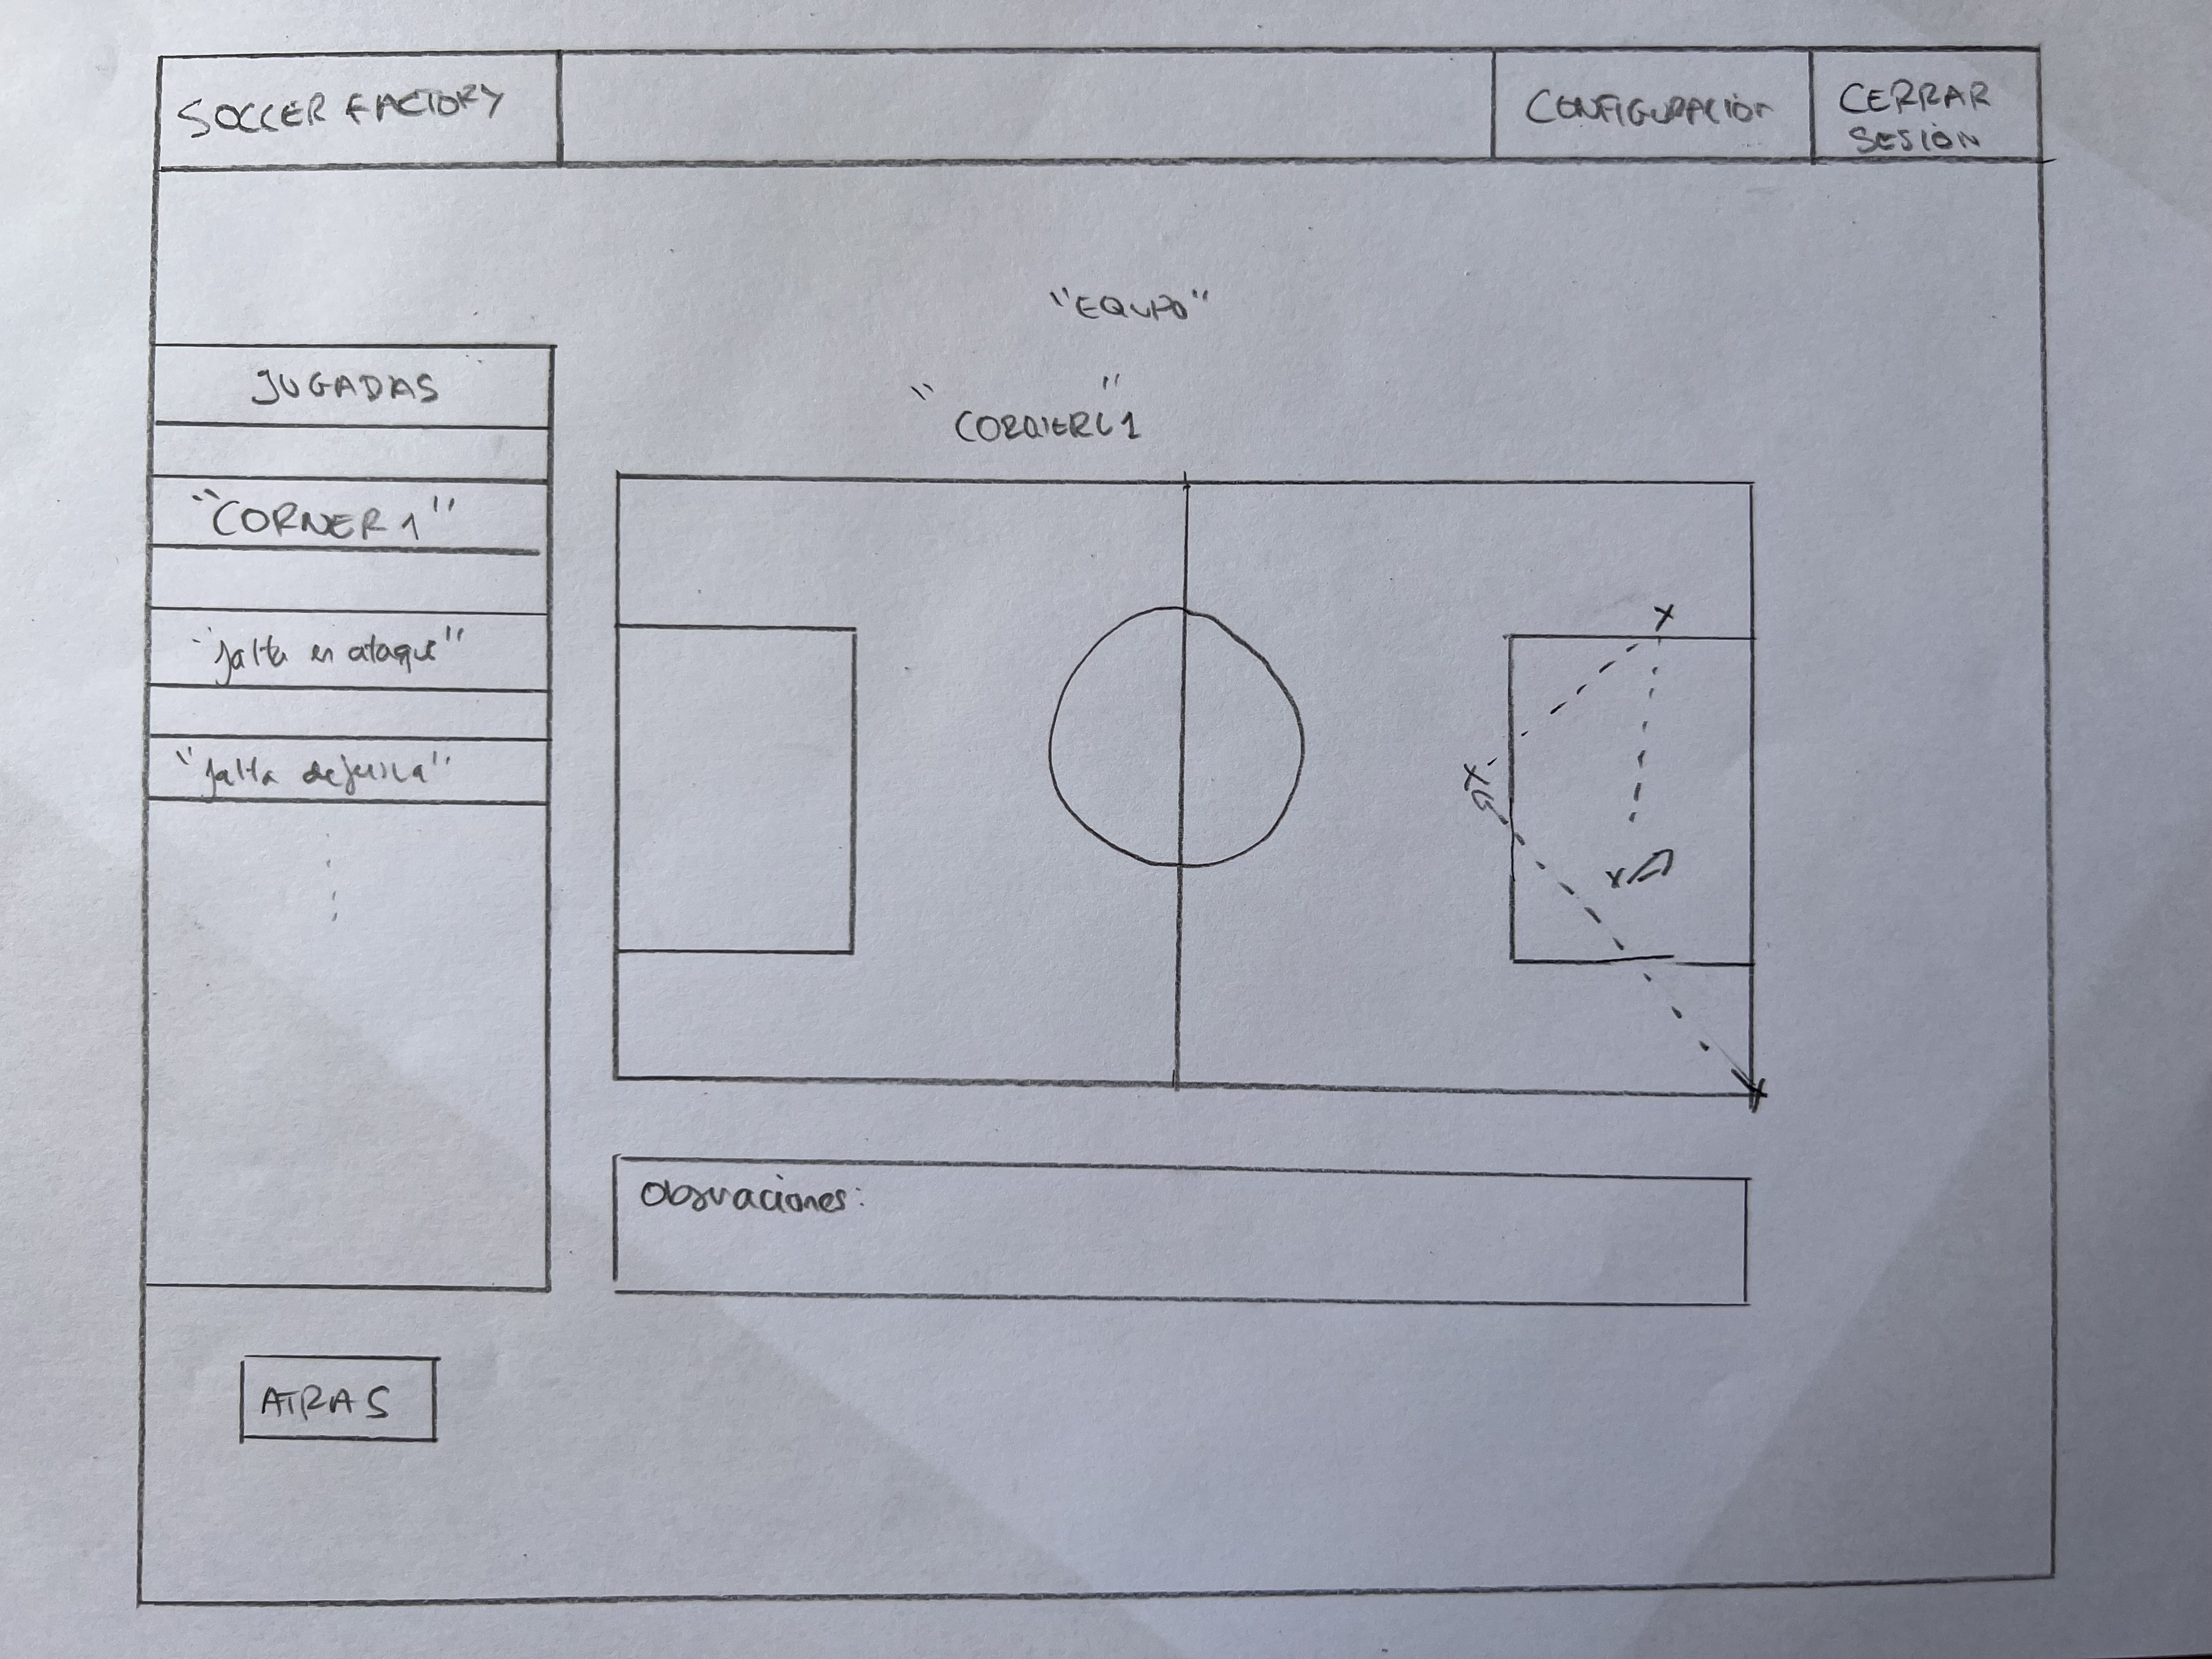 SOCCER FACTORY
CONFIGURACIÓN
CERRAR
SESIÓN
"EQUIPO"
JUGADAS
"CORNER 1"
"CORNER 1"
"falta en ataque"
"falta defensiva"
Obsvaciones:
ATRAS